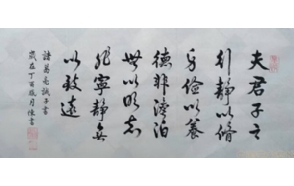 夫君子之
行静以脩
身儉以養
德非澹泊
無以明志
非寧静無
以致遠
諸葛亮誡子書
歲在丁酉